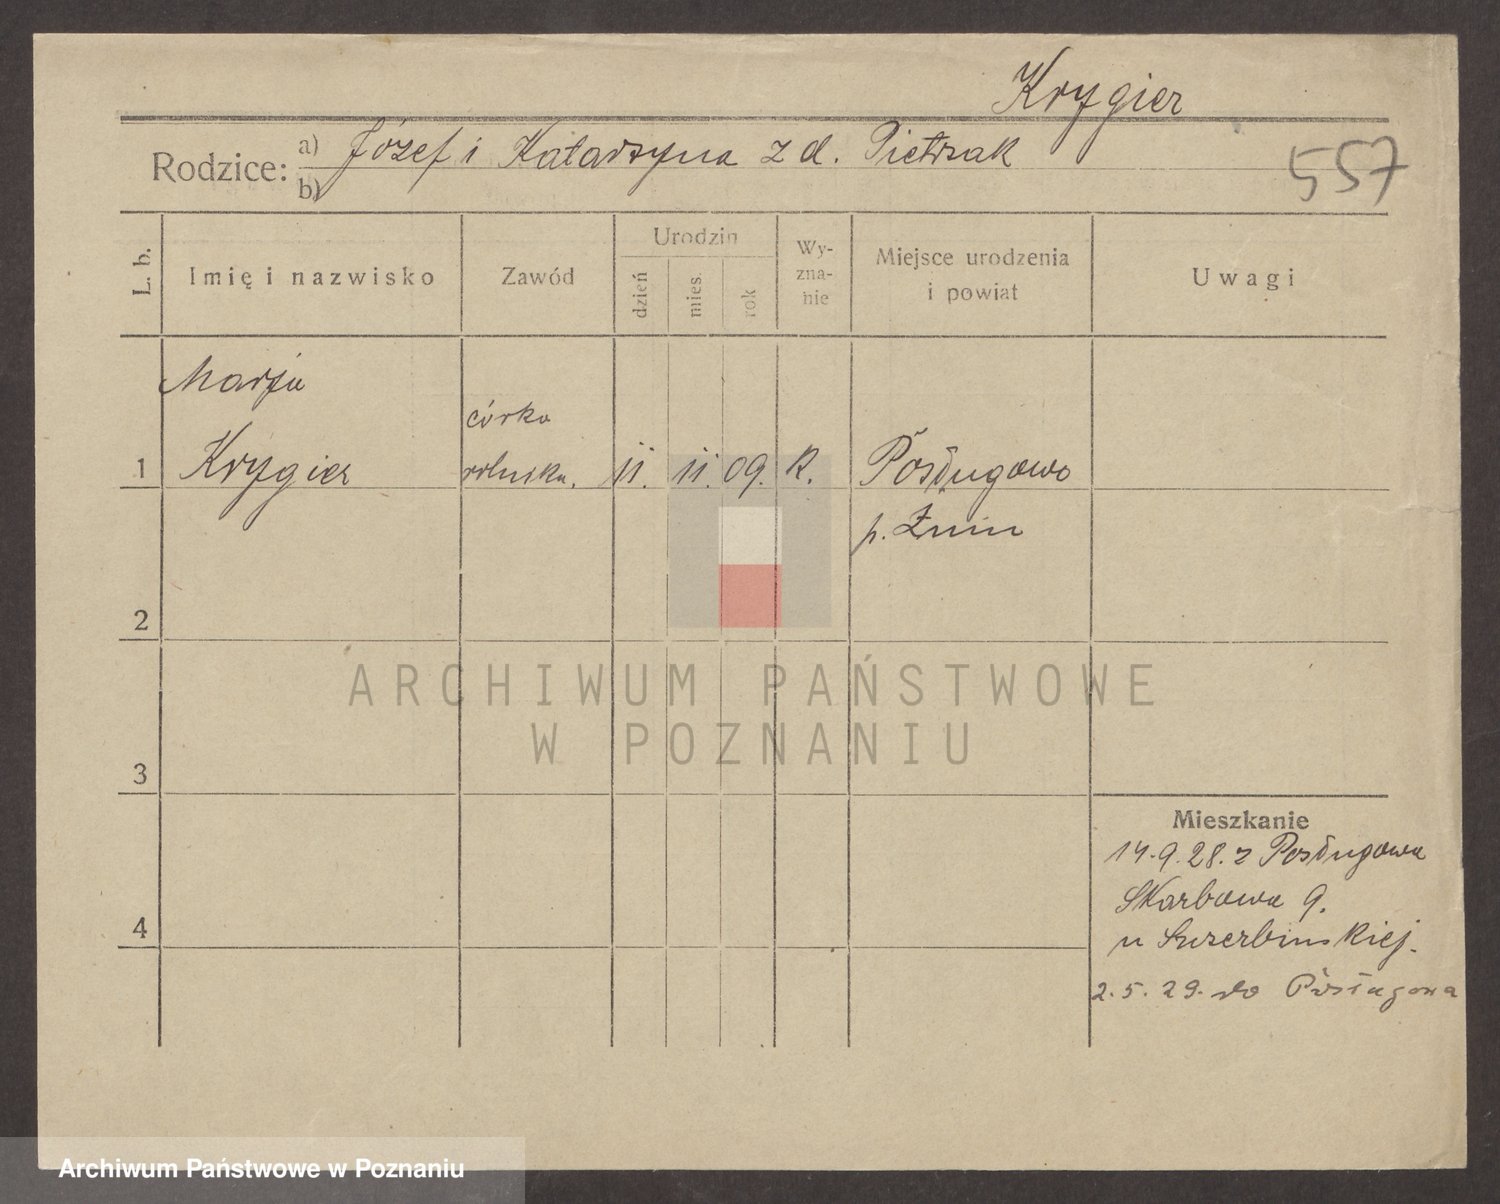 Krygier
Rodzice: a) Józef i Katarzyna z d. Pietrzak
b)
557
L. b.
Imię i nazwisko
Zawód
Urodzin
dzień
mies.
rok
Wy-
zna-
nie
Miejsce urodzenia
i powiat
Uwagi
Marja
córka
1 Krygier rolnika. 11. 11. 09. R. Posługowo
p. Żnin
2
3
4
Mieszkanie
14.9.28. z Posługowa
Skarbowa 9.
u
2.5.29. do Posługowa
ARCHIWUM PAŃSTWOWE
W POZNANIU
Archiwum Państwowe w Poznaniu